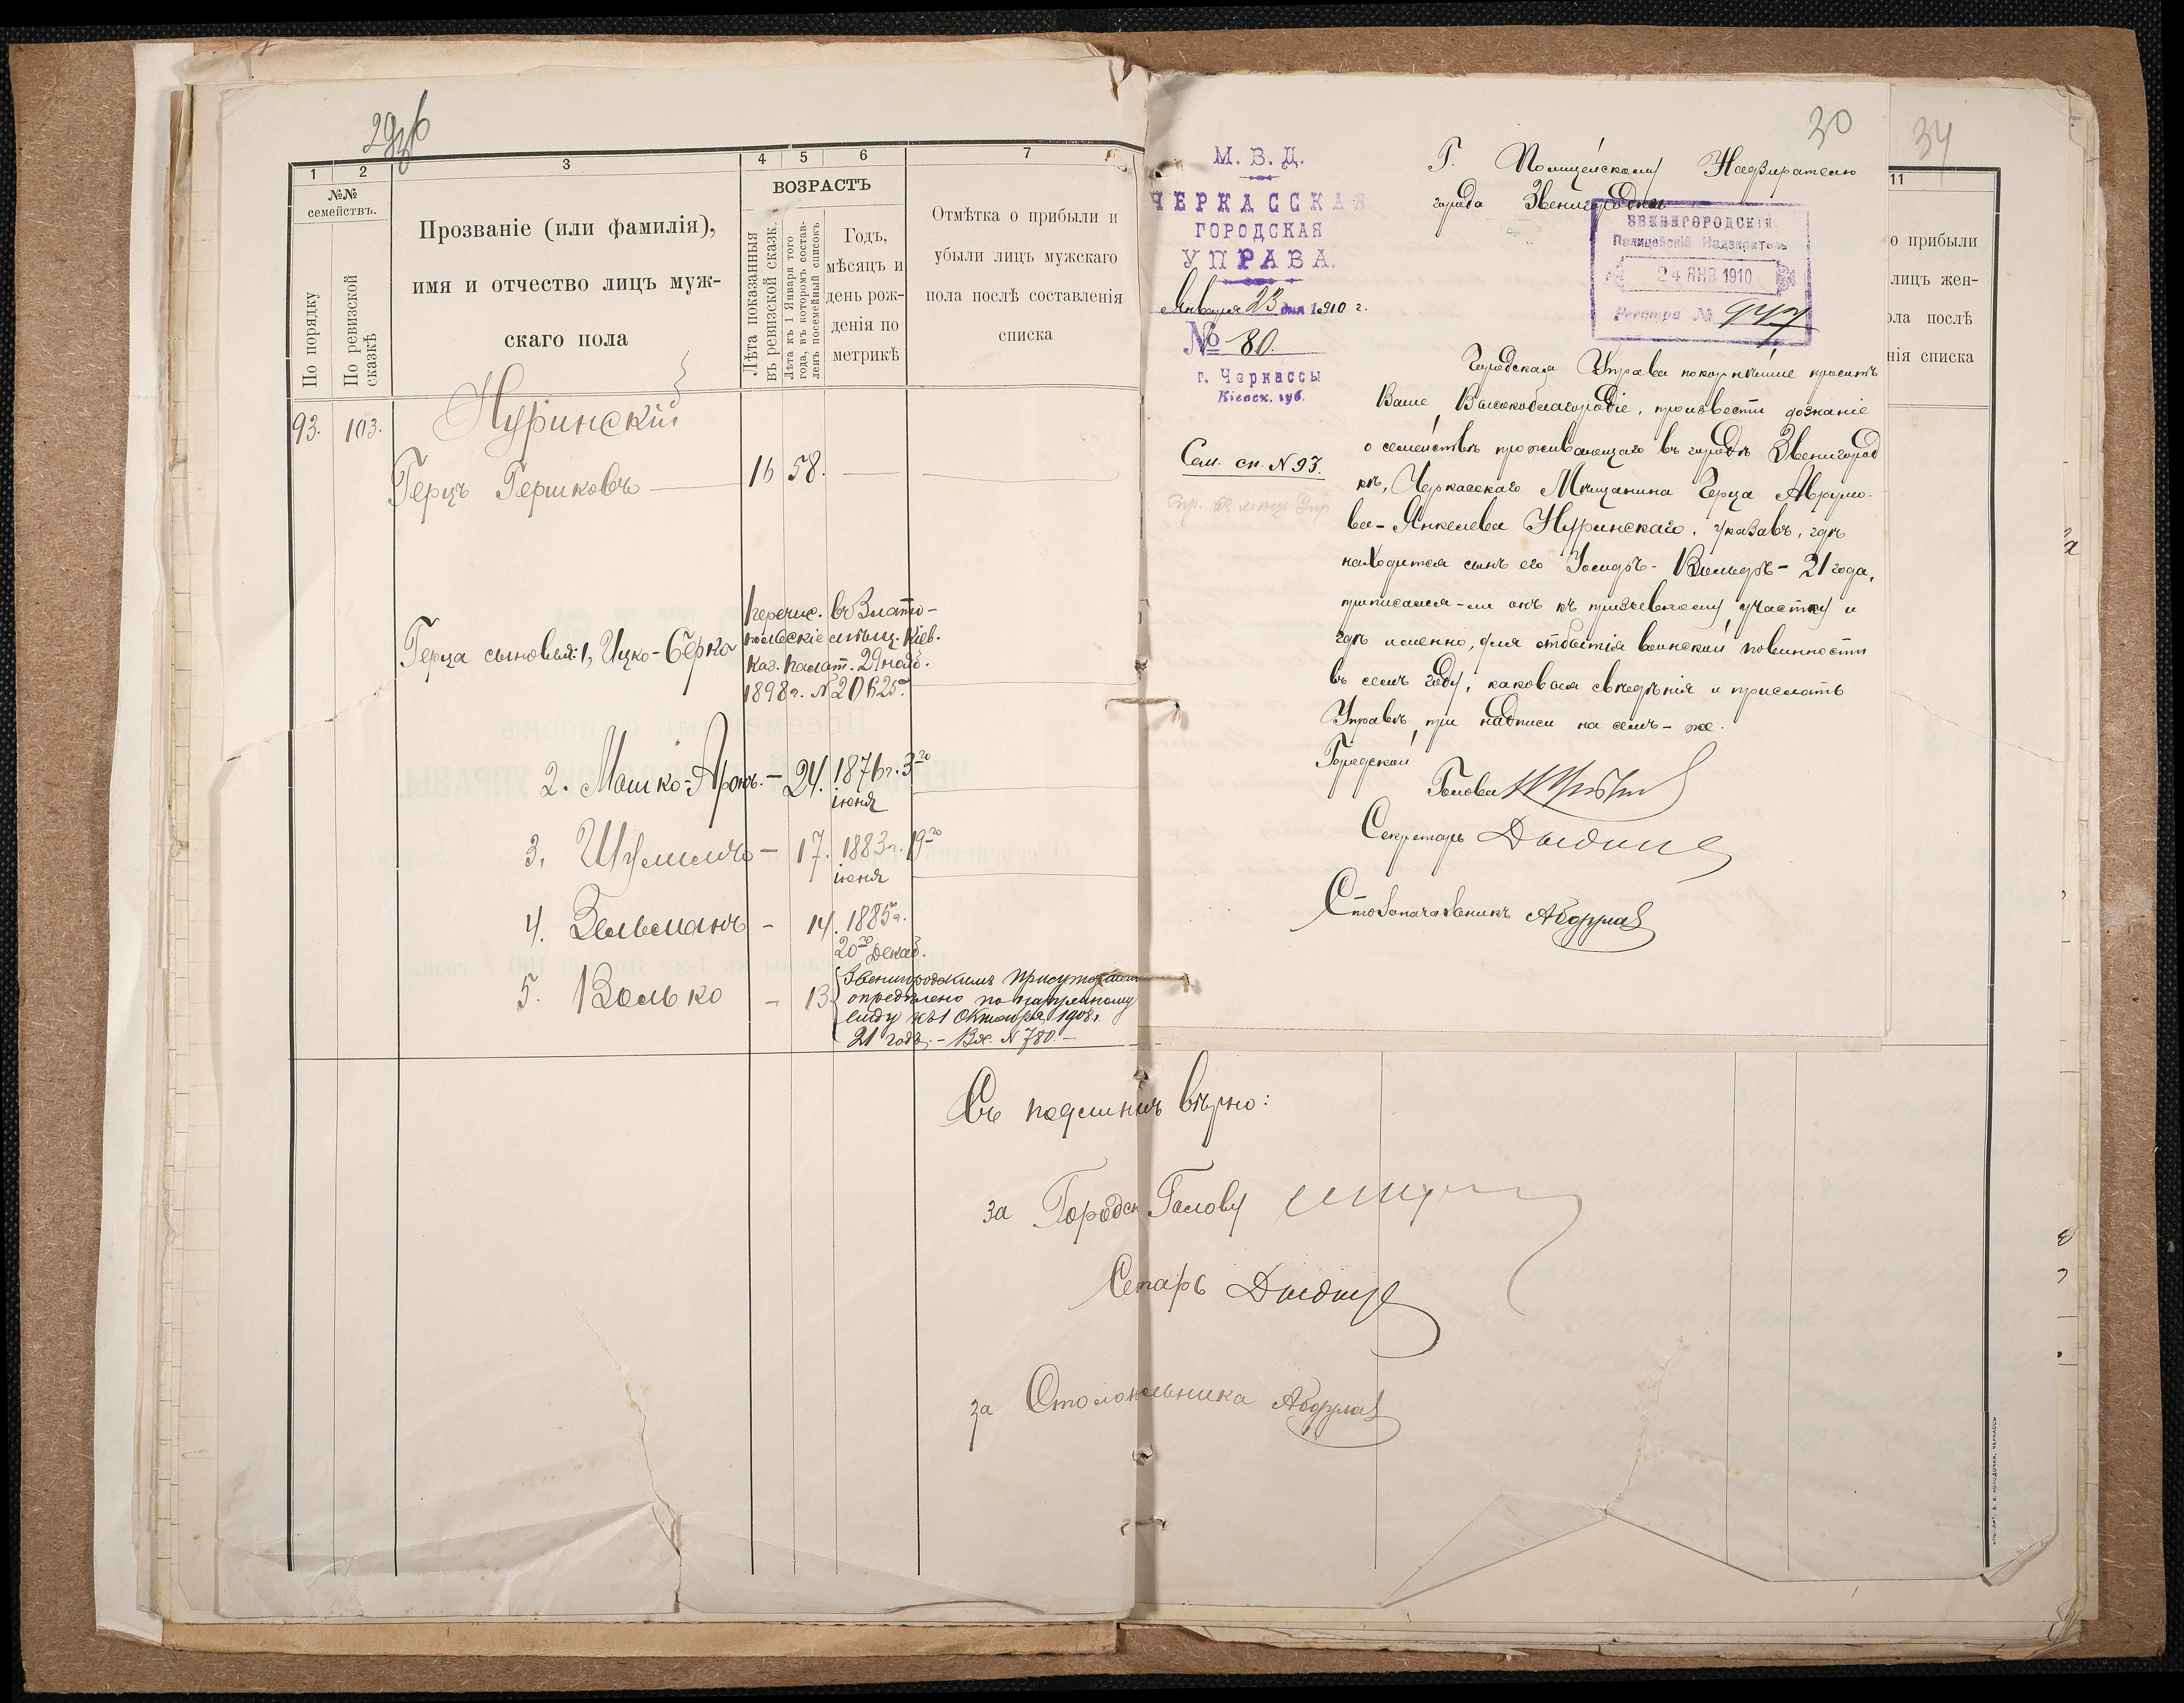 1 2 3 4 5 6 7
№№ семействъ.
По порядку
По ревизской сказкѣ
Прозваніе (или фамилія),
имя и отчество лицъ муж-
скаго пола
ВОЗРАСТЪ
Лѣта показанныя
въ ревизской сказк.
Лѣта къ 1 Января того
года, въ которомъ состав-
ленъ посемейный списокъ
Годъ,
мѣсяцъ и
день рож-
денія по
метрикѣ
Отмѣтка о прибыли и
убыли лицъ мужскаго
пола послѣ составленія
списка
93. 103. Нуринскій
Герцъ Гершковъ 16 58.
Герца сыновья: 1, Ицко-Берко
Перечис. въ Злато-
польскіе мѣщ. Кіев.
Каз. Палат. 29 нояб.
1898 г. № 20625.
2. Мошко-Аронъ - 24. 1876 г. 3го
іюня
3. Шулимъ - 17. 1883 г. 19го
іюня
4. Зельманъ - 14. 1885 г.
20го Декаб.
5. Волько - 13.
Звенигородскимъ Присутствіем
опредѣлено по наружному
виду къ 1 Октября 1908 г.
21 годъ. - Вх. № 780. -
Съ подлиннымъ вѣрно:
За Городск Голову
Сетарь Дыдице
За Столонльника
30
М. В. Д.
ЧЕРКАССКАЯ
ГОРОДСКАЯ
УПРАВА.
Января 23 дня 1910 г.
№ 80.
г. Черкассы
Кіевск. губ.
Сем. сп. № 93.
Г. Полицейскому Надзирателю
города Звенигородки
ЗВЕНИГОРОДСКІЙ
Полицейскій Надзиратель
24 ЯНВ 1910
Реестра № 947
Городская Управа покорнѣйше проситъ
Ваше Высокоблагородіе, произвести дознаніе
о семействѣ проживающаго въ городѣ Звенигород
кѣ, Черкасскаго Мѣщанина Герца Аврумо-
ва-Янкелева Нуринскаго, указавъ, гдѣ
находится сынъ его Зельдъ-Вольдъ - 21 года,
приписался-ли онъ къ призывному участку и
гдѣ именно, для отбытія воинской повинности
въ семъ году, каковыя свѣдѣнія и прислать
Управѣ, при надписи на семъ-же.
Городской
Голова
Секретарь Дыдице
Столоначальникъ
34
11
о прибыли
лицъ жен-
ола послѣ
нія списка